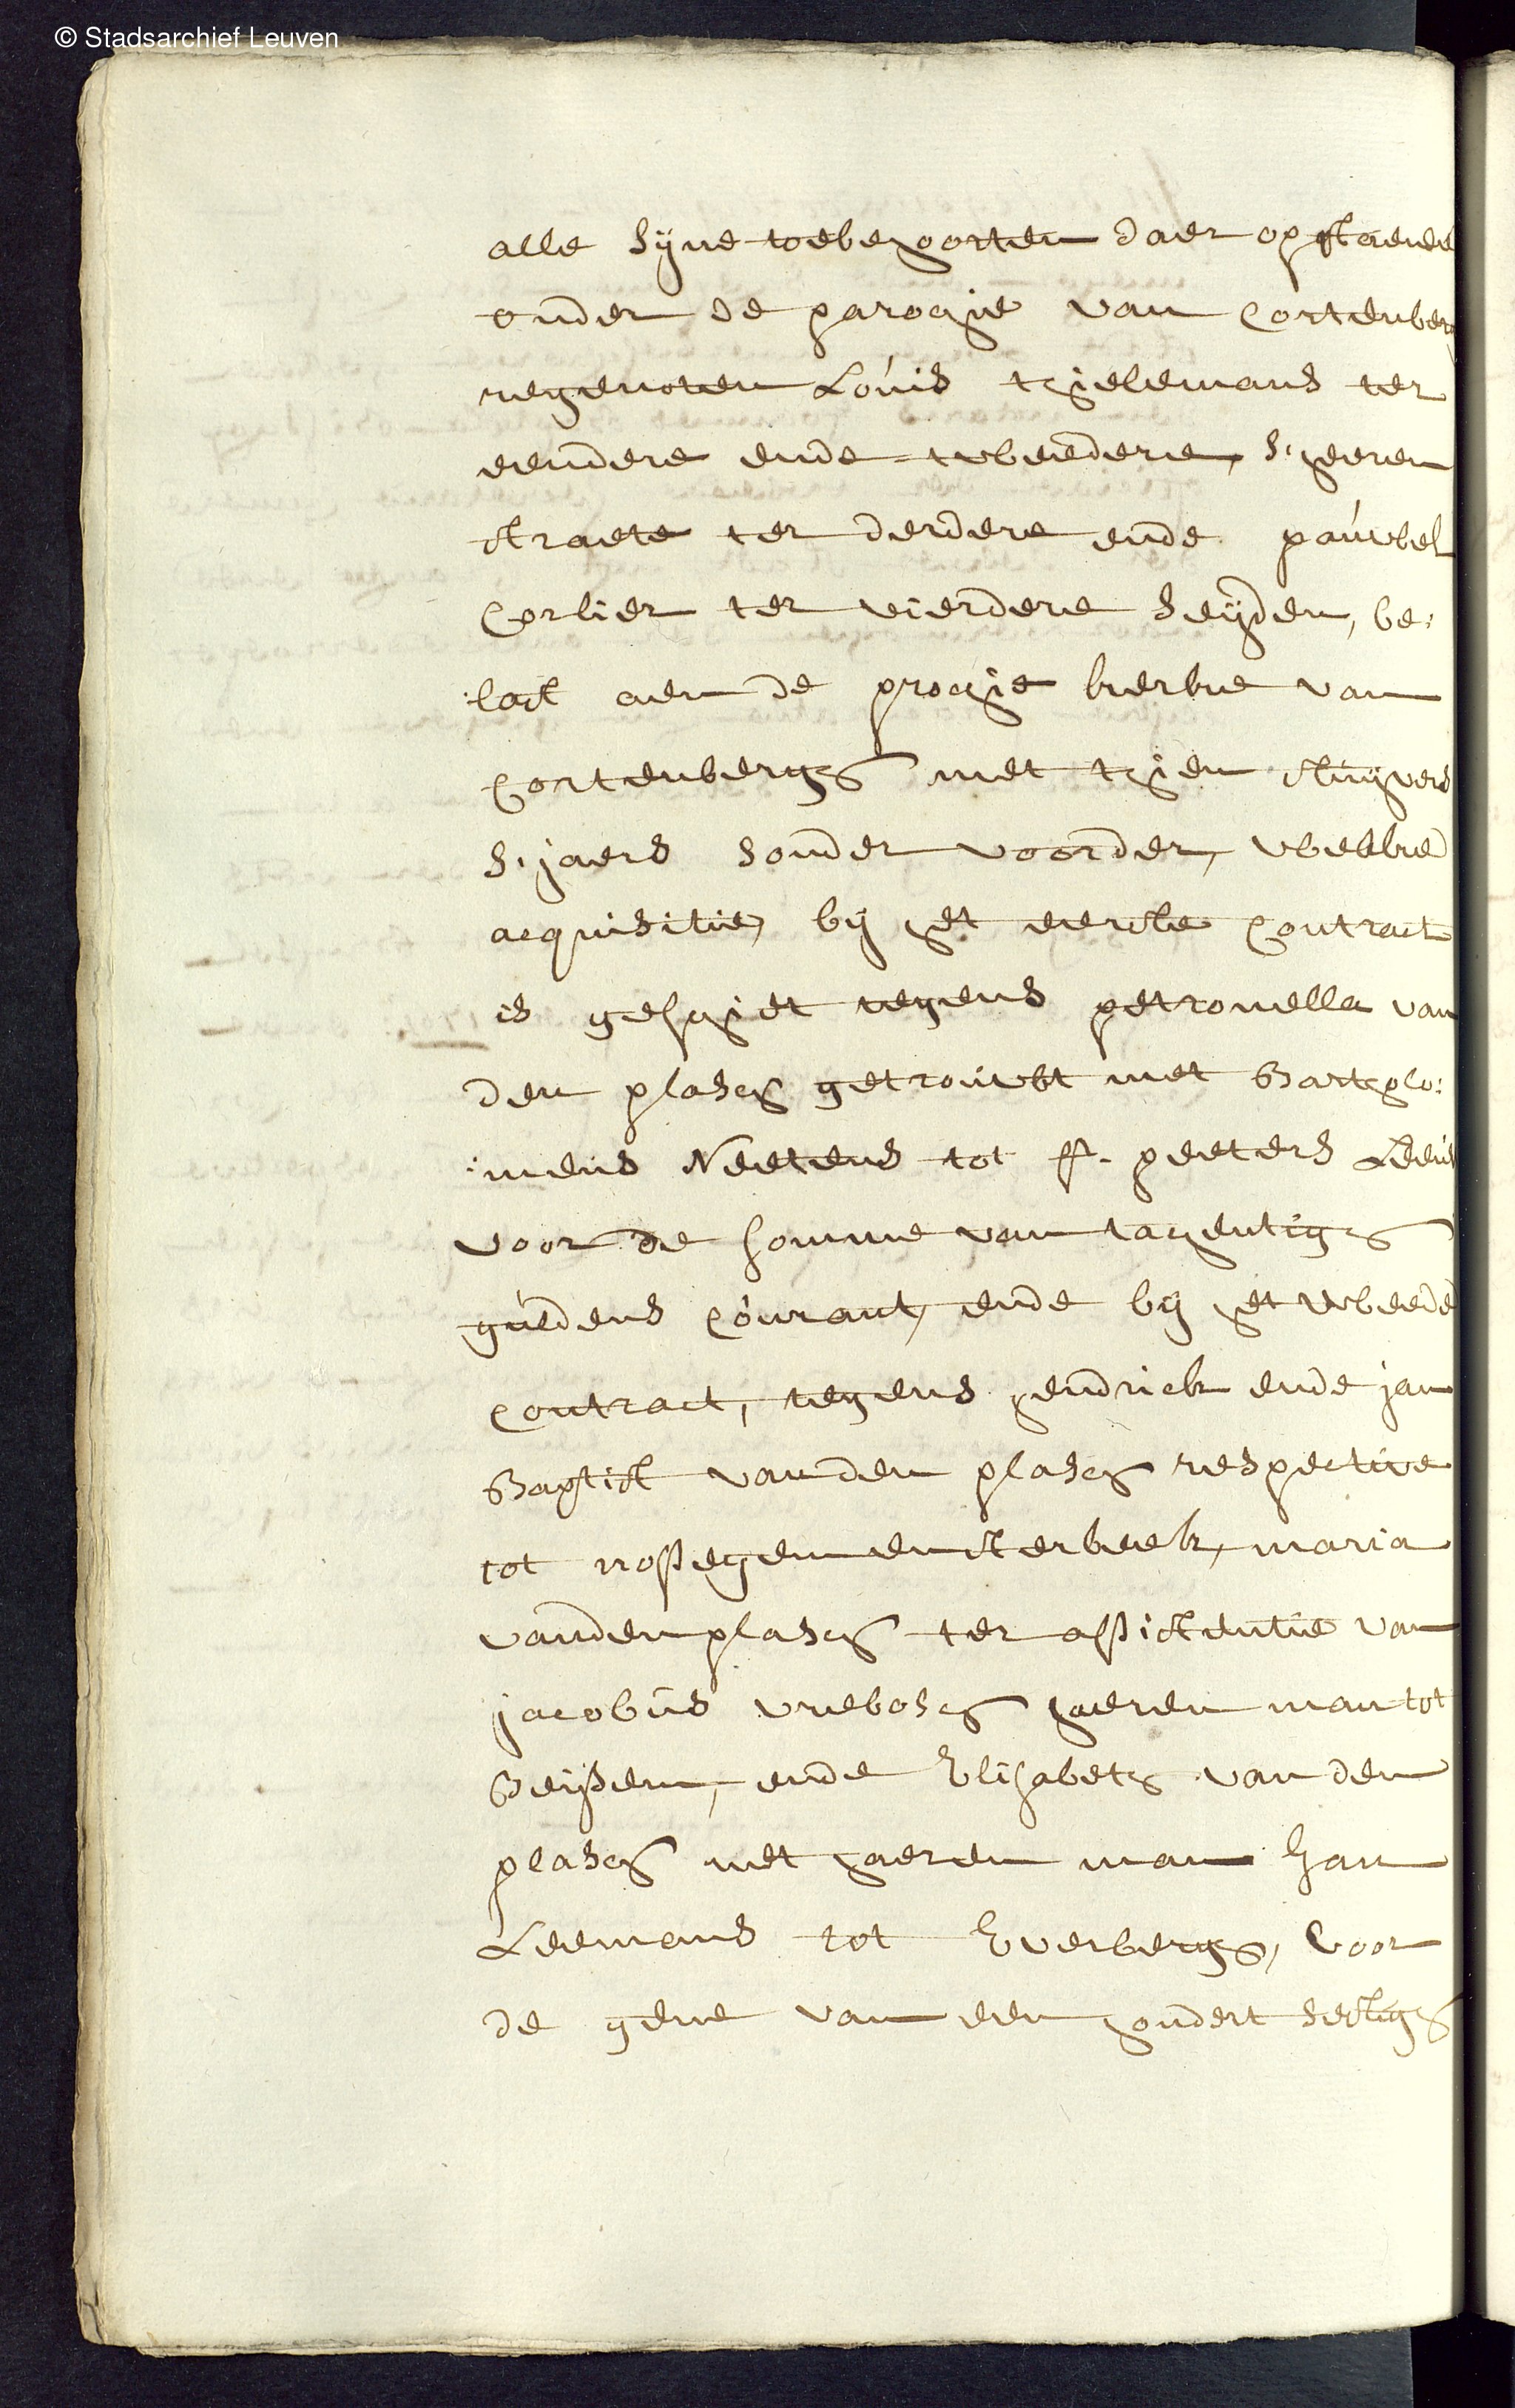 © Stadsarchief Leuven
alle sijne toebehoorten daer op staende
onder de parochie van Cortenber
regenoten Louis thielemans ter
eendere ende tweedere, s'heeren
straete ter derdere ende pauwel
Corlier ter vierdere seijden, be:
:last aen de prochie kercke van
Cortenbergh met thien stuijvers
s'jaers sonder voorder, welcke
acquisitie, bij het eerste Contract
is geschiet tegens petronella van
den plasch getrouwt met Bartholo:
:meus Neetens tot st. peeters Leeuw
voor de somme van tachentigh
guldens courant, ende bij het tweede
contract, tegens hendrick ende jan
Baptist vanden plasch respective
tot nossegem en sterbeek, maria
vanden plasch ter assistentie van
jacobus vrebosch haeren man tot
Beijsem, ende Elisabeth van den
plasch met haeren man Jan
Leemans tot Everbergh, voor
de gene van een hondert sestigh